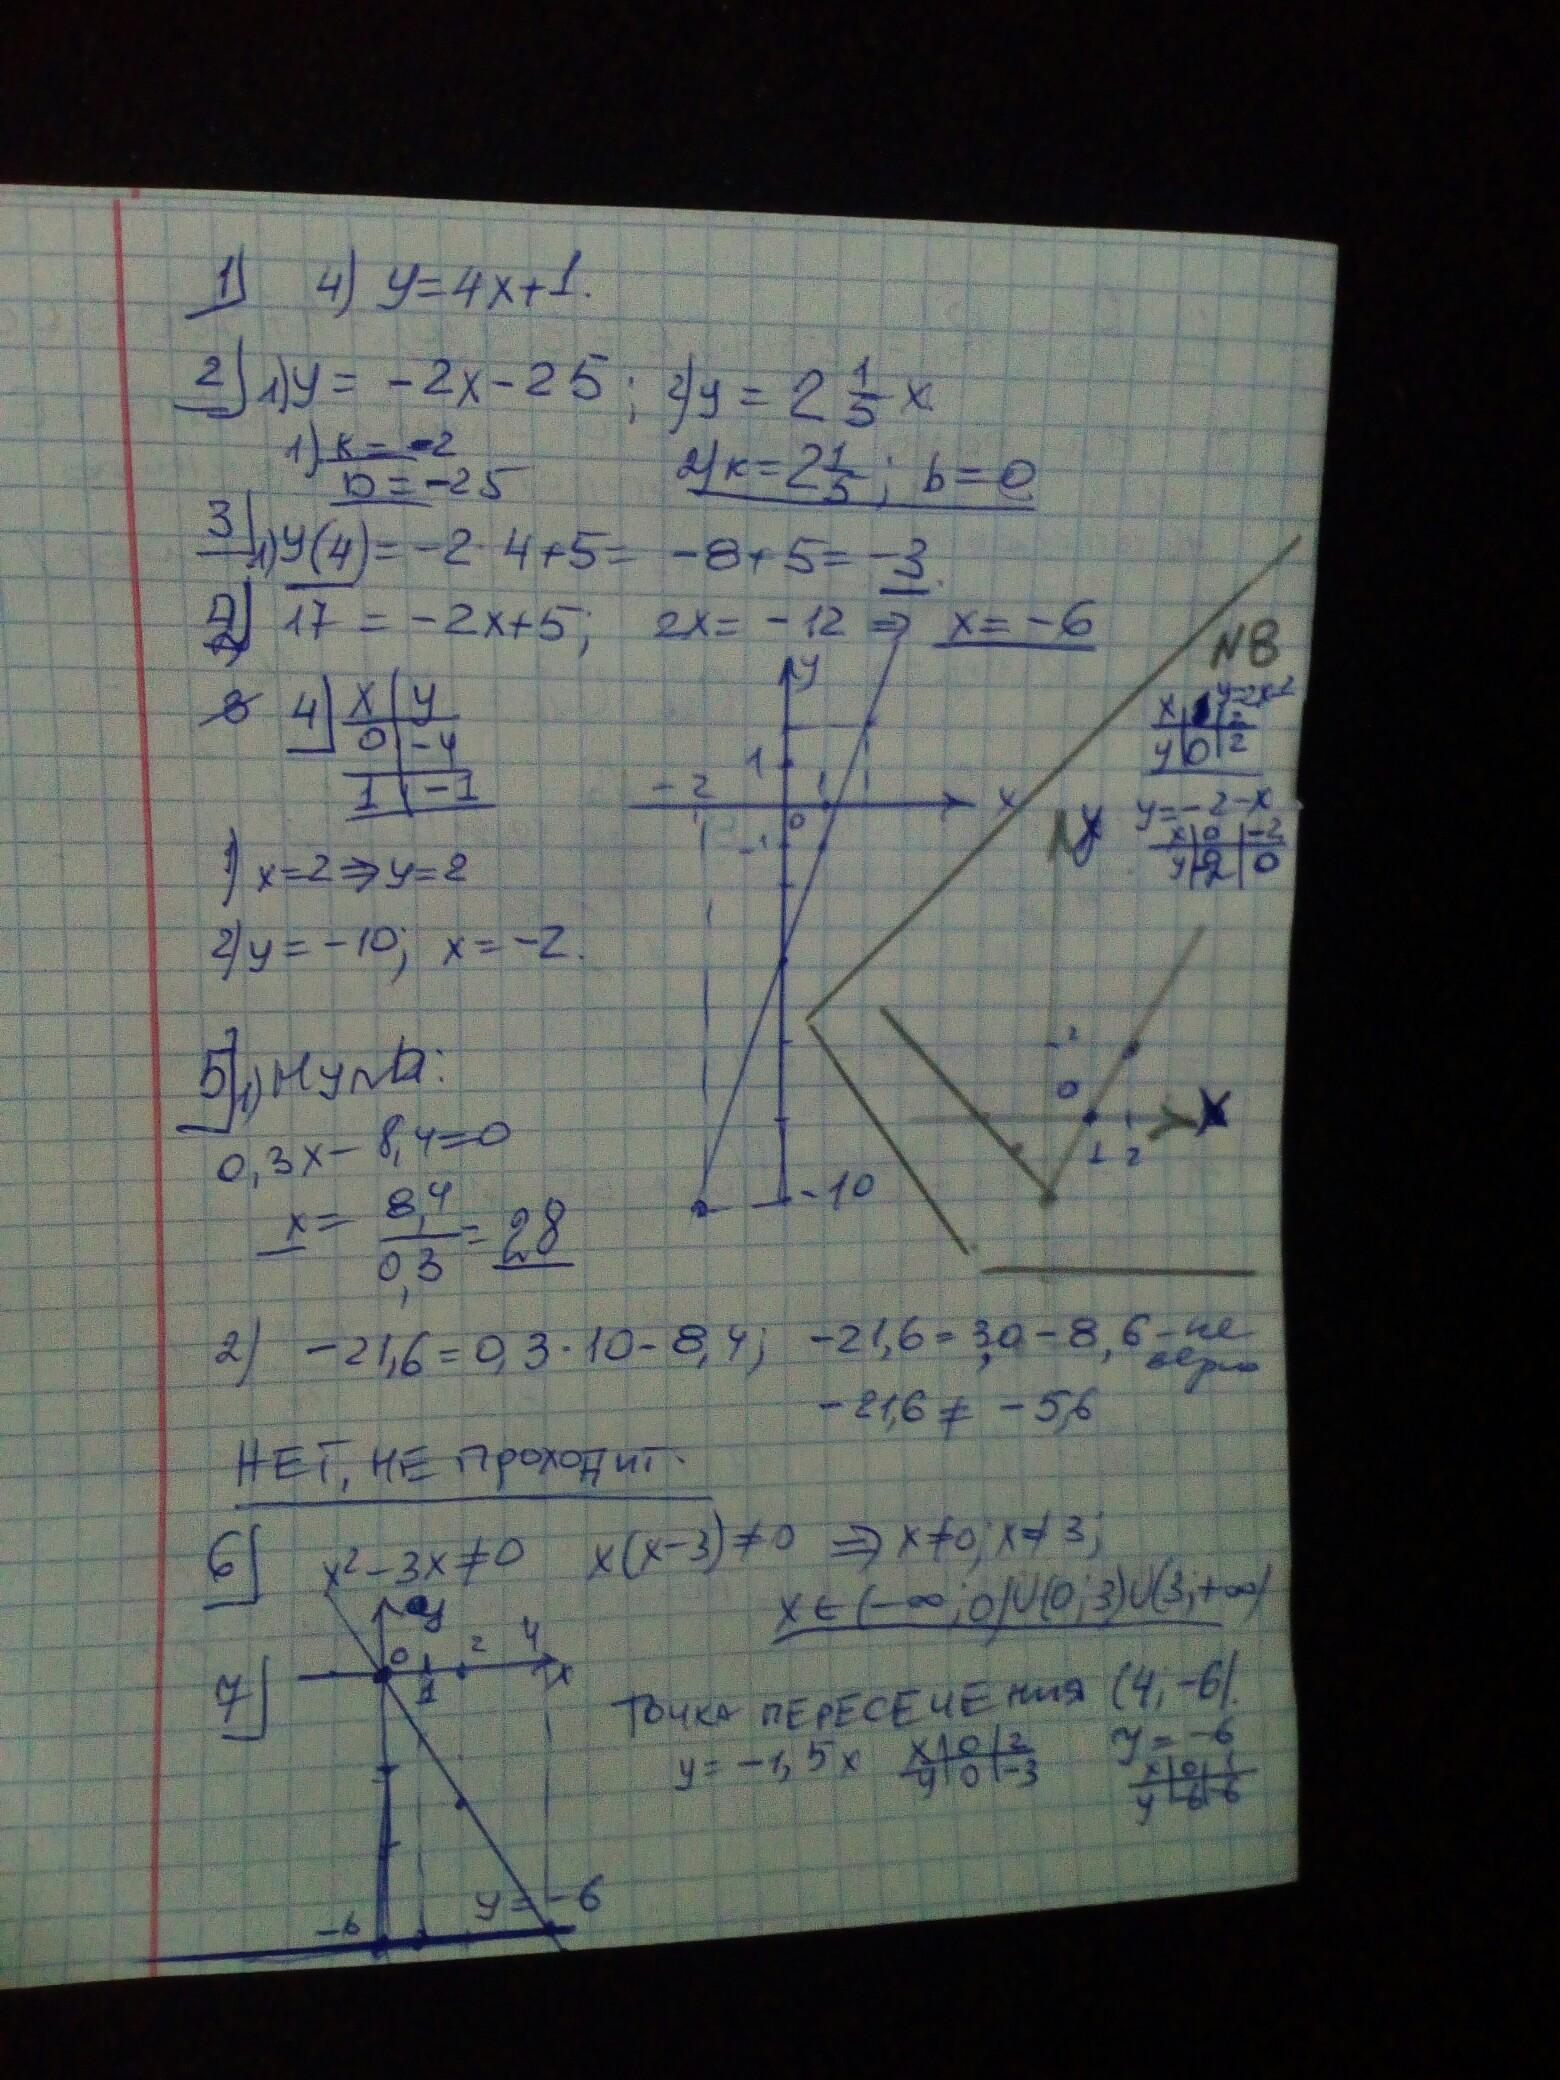 1) 4) y=4x+1.
2) 1) y = -2x-25; 2) y = 2 1/5 x
1) k = -2
b = -25
2) k=2 1/5; b=0
3) 1) y(4) = -2·4+5= -8+5= -3.
2) 17 = -2x+5; 2x= -12 ⇒ x= -6
4) x | y
0 | -4
1 | -1
y
1
-2
1
0
x
-1
-10
1) x=2⇒y=2
2) y= -10; x= -2.
N8
y=2x-2
x | 1 | 2
y | 0 | 2
y=-2-x
x | 0 | -2
y | -2 | 0
y
2
0
1 2
x
5) 1) Нули:
0,3x- 8,4=0
x= 8,4/0,3 = 28
2) -21,6=0,3·10-8,4; -21,6=3,0-8,6-не
верно
-21,6 ≠ -5,6
НЕТ, НЕ проходит.
6) x²-3x≠0 x(x-3)≠0 ⇒ x≠0; x≠3;
x∈(-∞;0)∪(0;3)∪(3;+∞)
7) y
0
1
2
4
x
-6
y= -6
Точка ПЕРЕСЕЧЕния (4;-6).
y= -1,5x x | 0 | 2
y | 0 | -3
y= -6
x | 0 | 1
y | -6 | -6